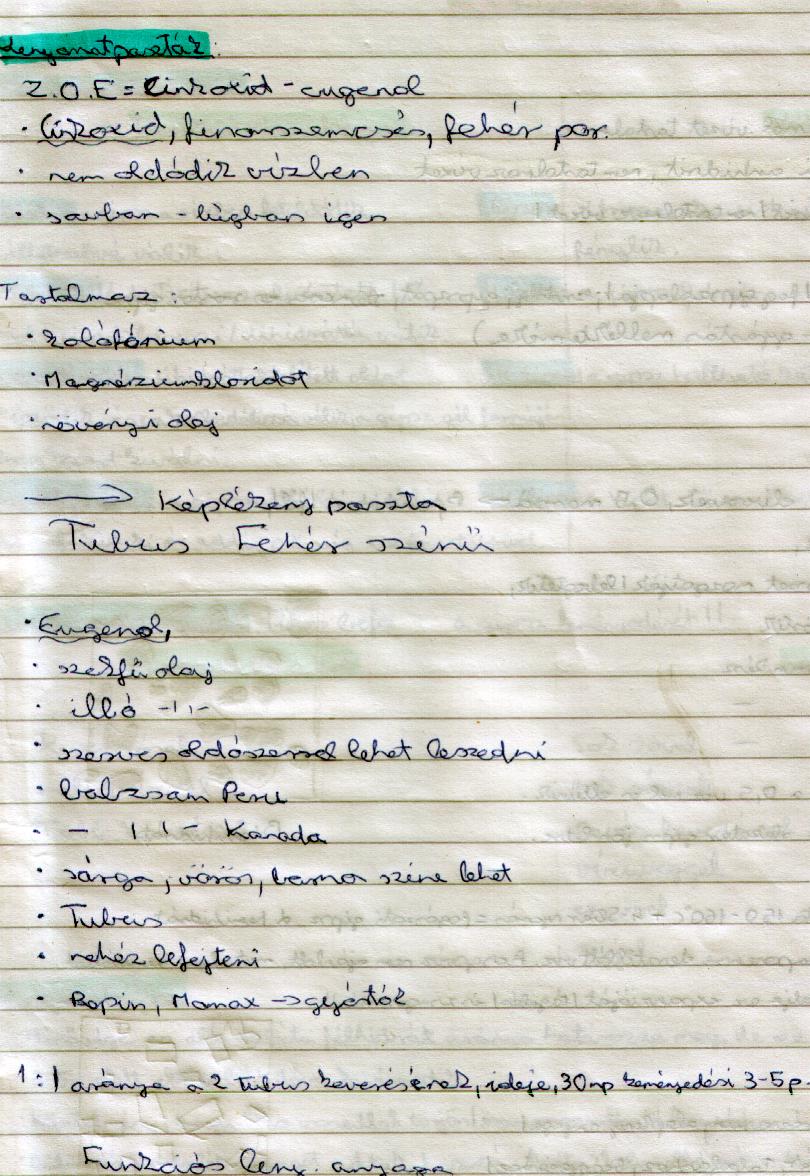 Lenyomatpaszták:
Z.O.E = Cinkoxid - eugenol
· Cinkoxid, finomszemcsés, fehér por.
· nem oldódik vízben
· savban - lúgban igen
Tartalmaz:
· kolofónium
· Magnéziumkloridot
· növényi olaj
→ Képlékeny paszta
Tubus Fehér színű
· Eugenol,
· szekfű olaj
· illó -11-
· szerves oldószerrel lehet leszedni
· balzsam Peru
· - 11 - Kanada
· sárga, vörös, barna színe lehet
· Tubus
· nehéz lefejteni
· → gyártók
1:1 aránya a 2 tubus keverésének, ideje, 30 mp keményedési 3-5 p.
Funkciós leny. anyaga